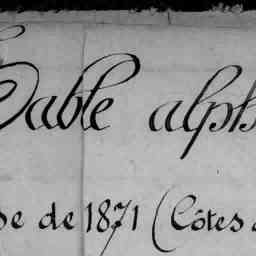 Table alph
se de 1871 (Côtes d